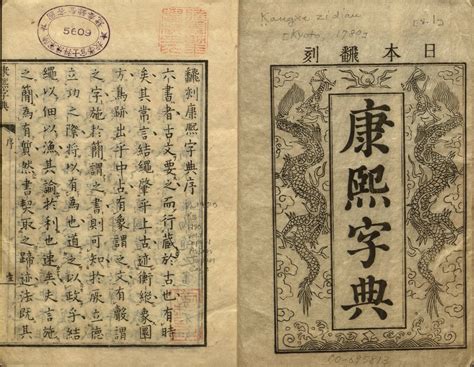 日本飜刻
康熙字典
飜刻康熙字典序
六書者古文要之而行藏於古也有時
矣其常言結繩肇乎上古迹衡縱象圖
方鳥跡出乎中古有像謂之文有聲謂
之字施於簡謂之書則可知於厥立德
立功之際將以有為也道之以政乎結
繩以佃以漁其諭於利也速矣史言施
之簡為有暫然書契取之蹄迹法既其
序
5609